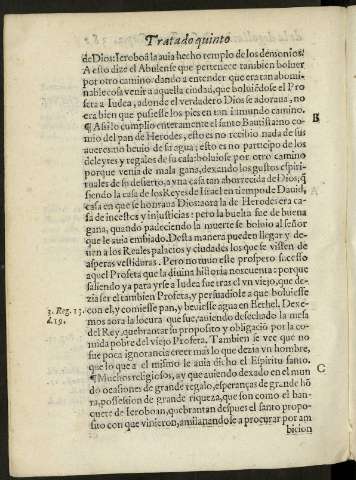 Tratado quinto
de Dios: Ieroboã la auia hecho templo de los demonios.
A esto dize el Abulense que pertenece tambien boluer
por otro camino: dando a entender que era tan abomi-
nable cosa venir a aquella ciudad, que boluiẽdose el Pro
feta a Iudea, adonde el verdadero Dios se adoraua, no
era bien que pusiesse los pies en tan inmundo camino.
B
¶ Assi lo cumplio enteramente el santo Bautista: no co
mio del pan de Herodes, esto es no recibio nada de sus
aueres: no beuio de su agua, esto es no participo de los
deleytes y regalos de su casa: boluiose por otro camino
porque venia de mala gana, dexando los gustos espiri-
tuales de su desierto, a vna casa tan aborrecida de Dios; q̃
siendo la casa de los Reyes de Israel en tiempo de Dauid,
casa en que se honraua Dios: aora la de Herodes era ca-
sa de incestos y injusticias: pero la buelta fue de buena
gana, quando padeciendo la muerte se boluio al señor
que le auia embiado. Desta manera pueden llegar y de-
uen a los Reales palacios y ciudades los que se visten de
asperas vestiduras. Pero no tuuo este prospero successo
aquel Profeta que la diuina historia nos cuenta: porque
saliendo ya para yrse a Iudea fue tras el vn viejo, que de-
zia ser el tambien Profeta, y persuadiole a que boluiesse
3. Reg. 13.
con el, y comiesse pan, y beuiesse agua en Bethel. Dexe-
d. 19.
mos aora la locura que fue, auiendo desechado la mesa
del Rey, quebrantar su proposito y obligaciõ por la co-
mida pobre del viejo Profeta. Tambien se vee que no
fue poca ignorancia creer mas lo que dezia vn hombre,
que lo que a el mismo le auia dicho el Espiritu santo.
C
¶ Muchos religiosos, ay que auiendo dexado en el mun
do ocasiones de grande regalo, esperanças de grande hõ
ra, possession de grande riqueza, que son como el ban-
quete de Ieroboan, quebrantan despues el santo propo-
sito con que vinieron, amilanandose a procurar por am
bicion